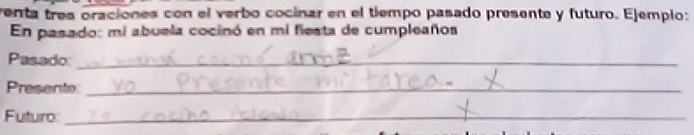 renta tres oraciones con el verbo cocinar en el tiempo pasado presente y futuro. Ejemplo:
En pasado: mi abuela cocinó en mi fiesta de cumpleaños
Pasado: mi mamá cocinó arroz
Presente: yo presente mi tarea.
Futuro: Yo cocino